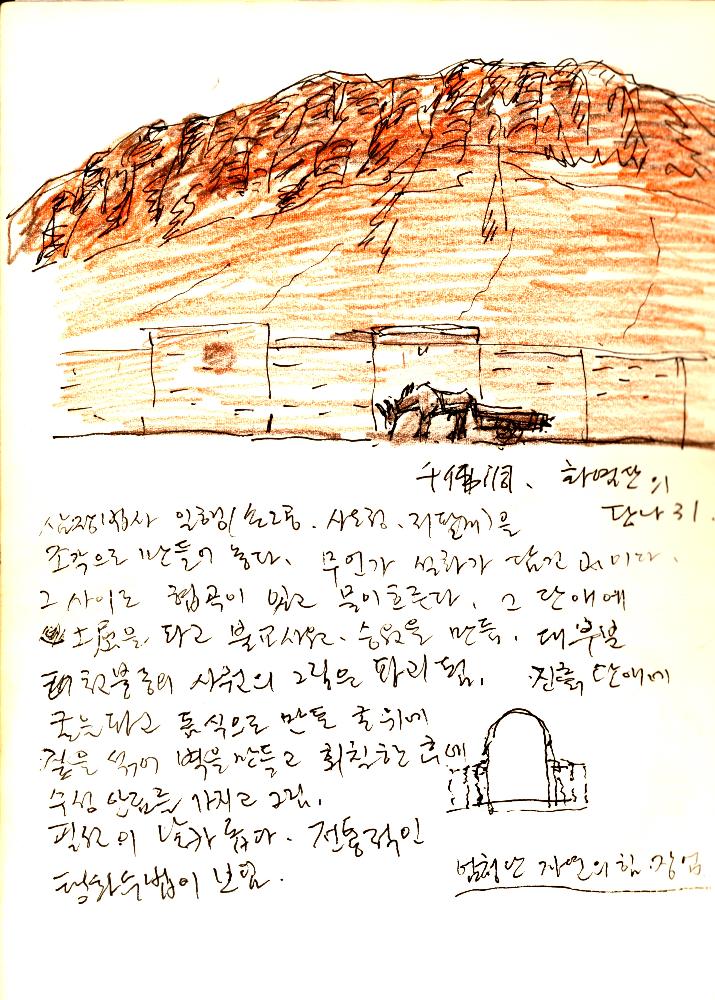 千佛洞. 화염산의
단나귀.
삼장법사 일행(손오공. 사오정. 저팔계)을
조각으로 만들어 놓다. 무언가 설화가 담긴
그 사이로 협곡이 있고 물이 흐른다. 그 단애에
土屋을 파고 불교사원. 승원을 만듬. 대부분
천불동의 사원의 그림은 파괴됨. 진흙 단애에
굴을 파고 식으로 만든 굴 위에
짚을 섞어 벽을 만들고 회칠한 후에
수성 안료를 가지고 그림.
필선이 날카롭다. 전통적인
수법이 보임.
엄청난 자연의 힘. 장엄